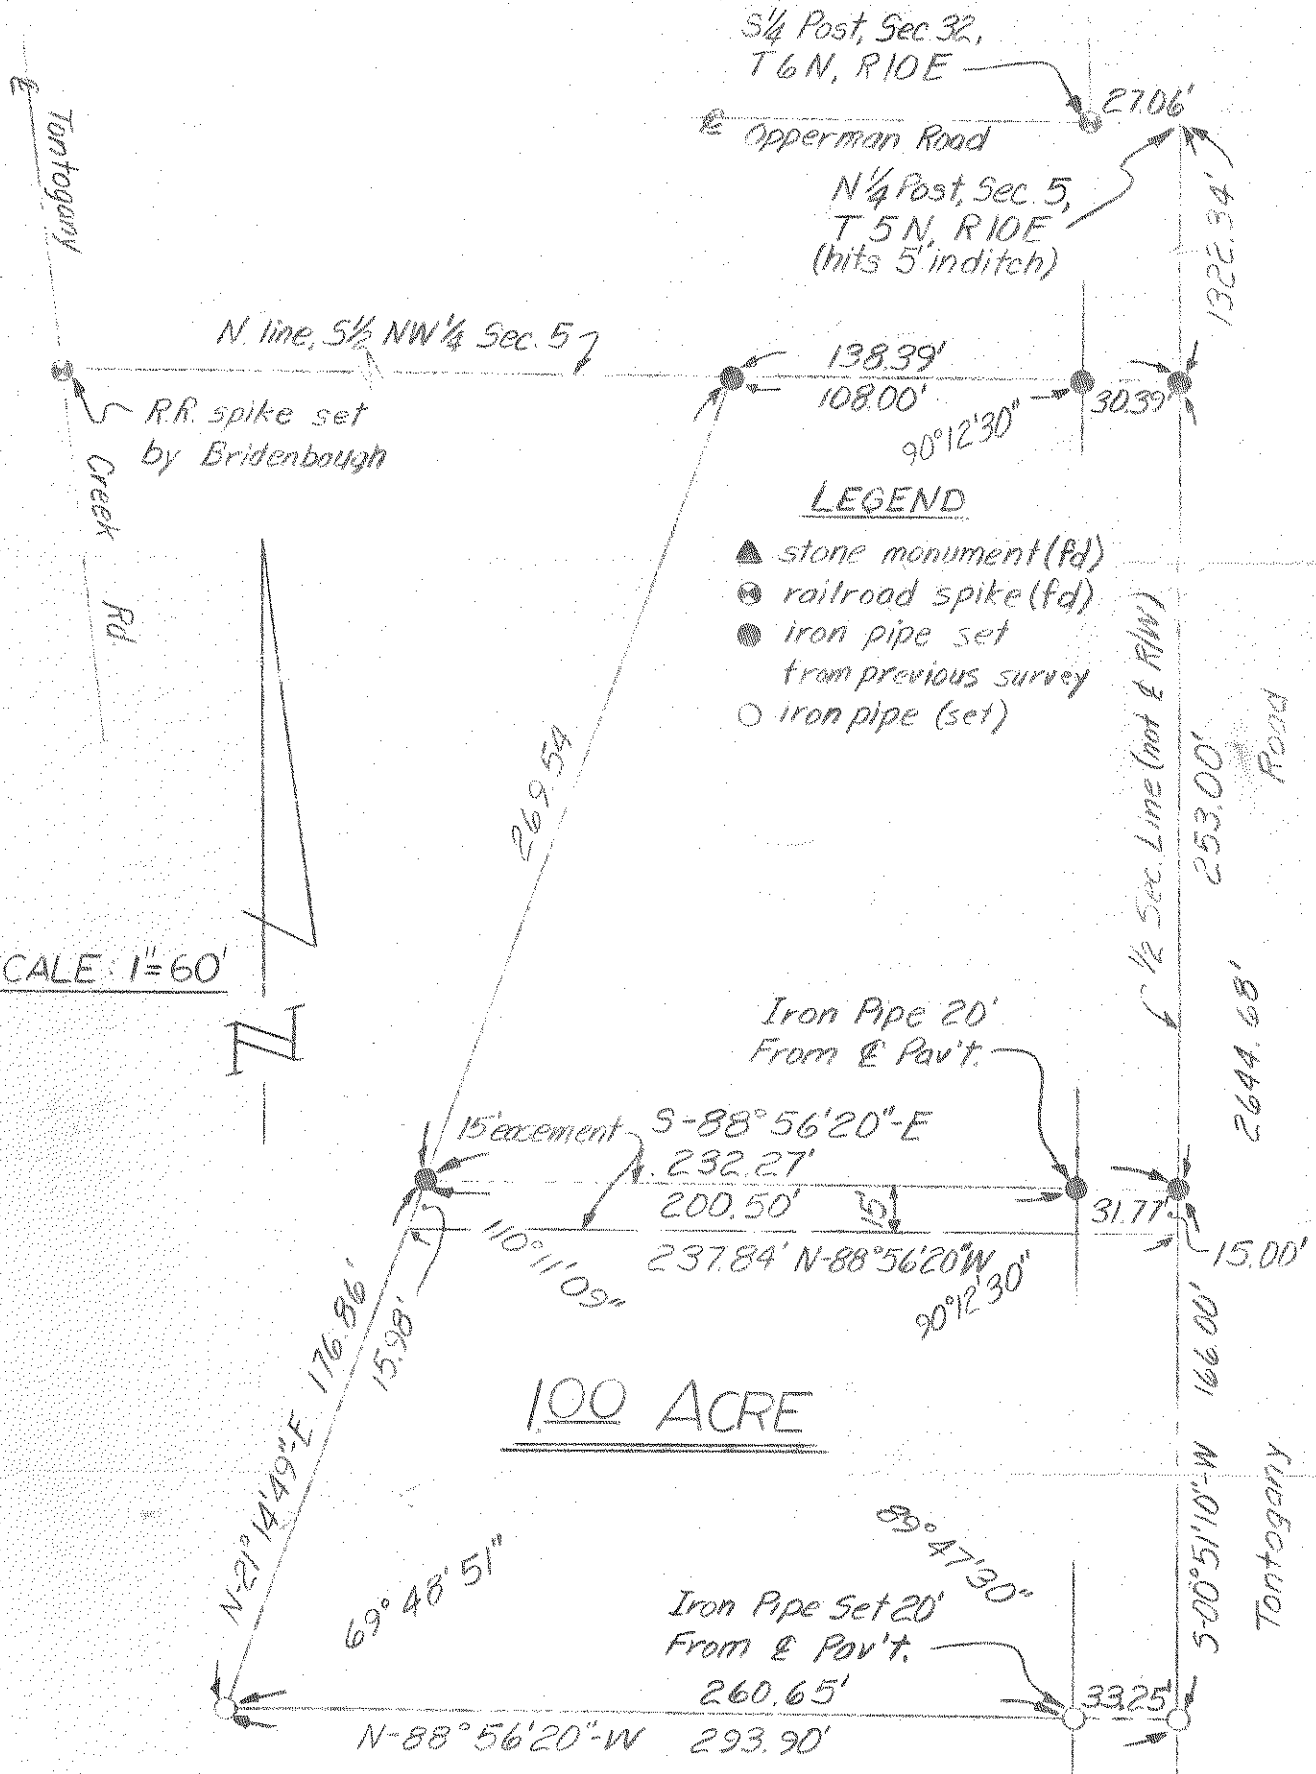 S 1/4 Post, Sec. 32,
T 6 N, R 10 E
27.06'
℄ Opperman Road
N 1/4 Post, Sec. 5,
T 5 N, R 10 E
(hits 5' in ditch)
1322.34'
℄
Tontogany
Creek
Rd.
N. line, S 1/2 NW 1/4 Sec. 5
138.39'
108.00'
30.39'
90°12'30"
R.R. spike set
by Bridenbough
LEGEND
stone monument (fd)
railroad spike (fd)
iron pipe set
from previous survey
iron pipe (set)
℄ 1/2 Sec. Line (not ℄ R/W)
253.00'
Road
269.54
SCALE: 1"=60'
N
2644.68'
Iron Pipe 20'
From ℄ Pav't.
15' easement
S-88°56'20"-E
232.27'
200.50'
15'
31.77'
15.00'
237.84' N-88°56'20"W
110°11'09"
90°12'30"
176.86'
15.98'
N-21°14'49"-E
166.00'
S-00°51'10"-W
Tontogany
1.00 ACRE
69°48'51"
89°47'30"
Iron Pipe Set 20'
From ℄ Pav't.
260.65'
33.25'
N-88°56'20"-W 293.90'